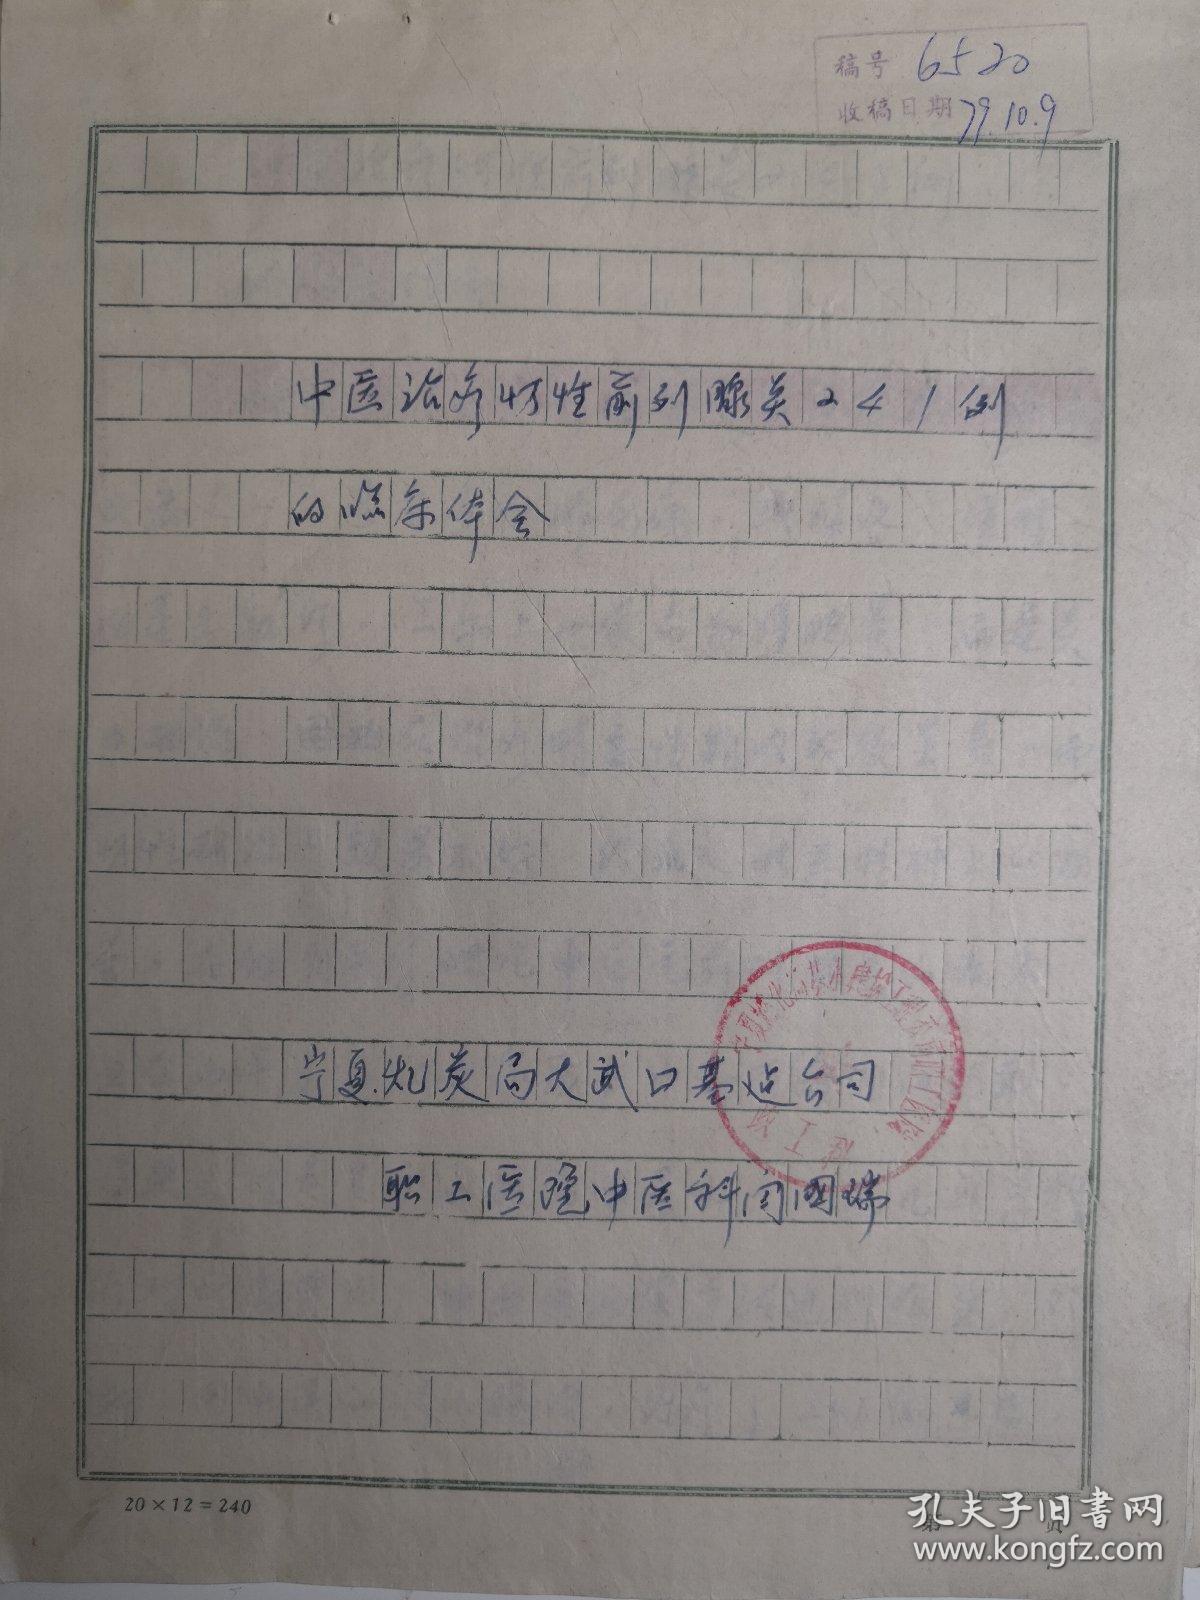 稿号 6520
收稿日期 79.10.9
中医治疗慢性前列腺炎241例
的临床体会
宁夏煤炭局大武口基建公司
职工医院中医科闫国瑞
20×12=240
第 页
孔夫子旧书网
www.kongfz.com